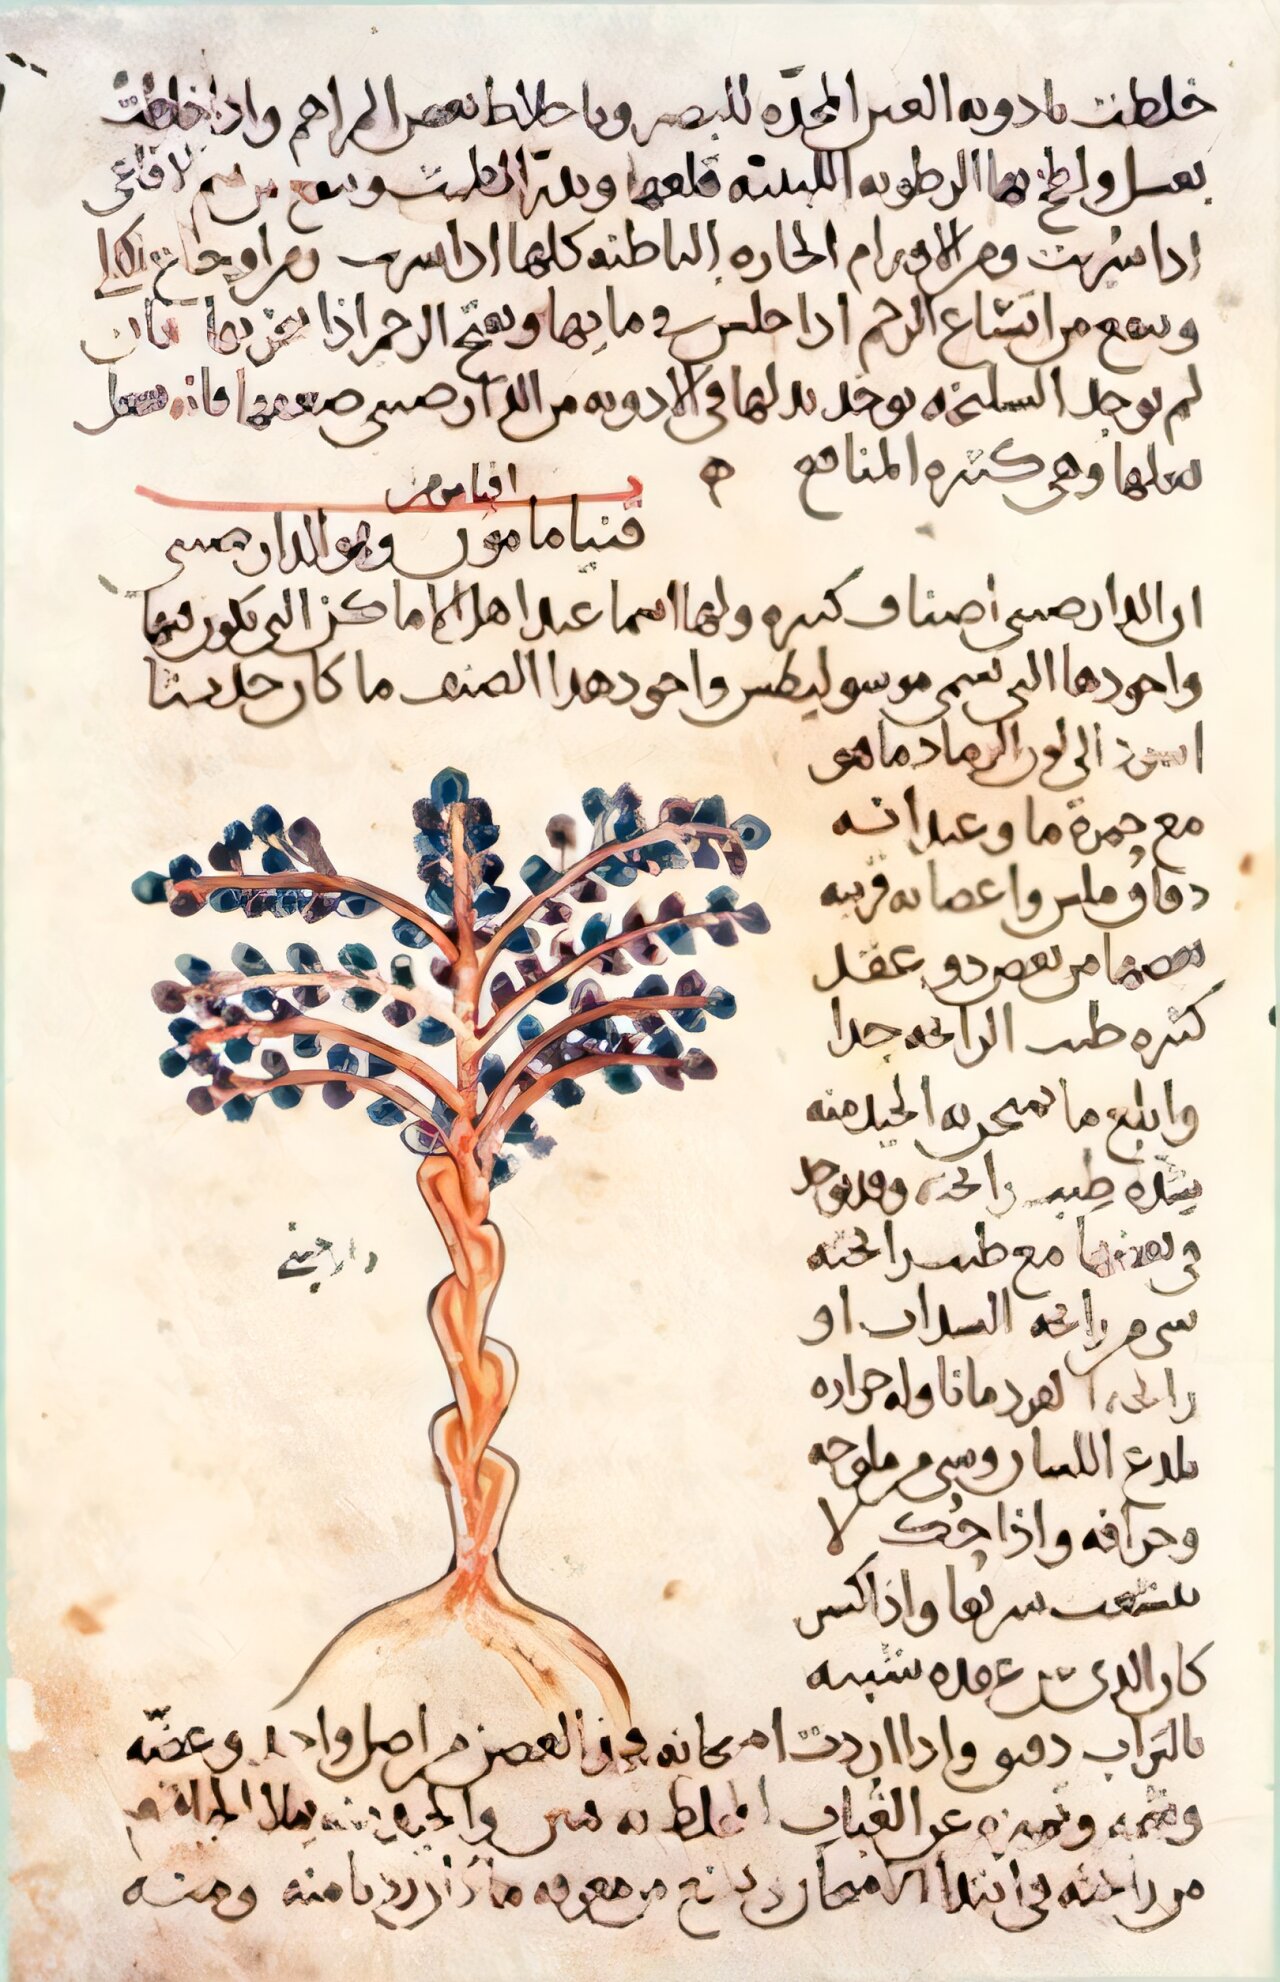 خلطت بادويه العين المحدّه للبصر وباخلاط بعض المراهم واذا خلطت
بعسل ولطخ بها الرطوبه اللبنيه قلعها وينفع من سم الافاعى
اذا شربت ومن الاورام الحاره الباطنه كلها اذا شربت
وينفع من اتساع الرحم اذا جلس فى مايها ويفتح الرحم اذا بها فان
لم يوجد السليخه يوخذ بدلها فى الادويه من الدارصينى ضعفها فانه يفعل
فعلها وهى كثيره المنافع ه
قنياما مومن وهو الدارصينى
ان الدارصينى اصناف كثيره ولها اسما عند اهل الاماكن التى تكون فيها
واجودها التى تسمى موسوليطس واجود هذا الصنف ما كان حديثا
اسود الى لون الرماد ما هو
مع حمرة ما وعيدانه
دقاق ملس واغصانه قريبه
بعضها من بعض ذو عقد
كثيره طيب الرائحه جدا
وابلغ ما يمتحن به الجيد منه
شدّة طيب رائحته وقد يوجد
فى بعضها مع طيب رائحته
شى من رائحه السداب او
رائحه القردمانا وله حراره
يلدع اللسان وشى من ملوحه
وحرافه واذا حك لا
يتشعب سريعا واذا كسر
كان الذى بين عقده شبيه
بالتراب دقيق واذا اردت امتحانه فخذ الغصن من اصل واحد
عن الفتات
من رائحته فى ابتدا الامتحان من معرفه ما منه ومنه
دارصينى